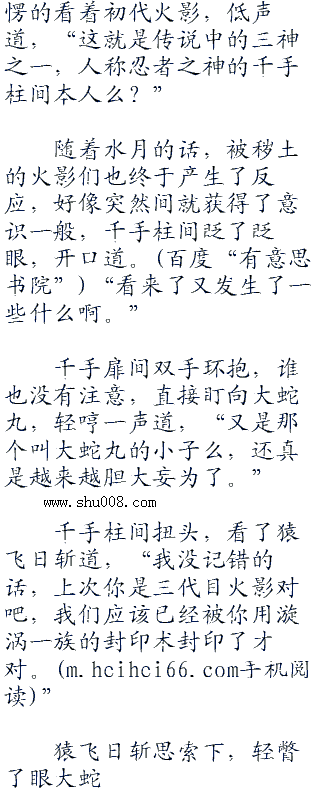 愣的看着初代火影，低声
道，“这就是传说中的三神
之一，人称忍者之神的千手
柱间本人么？”
随着水月的话，被秽土
的火影们也终于产生了反
应，好像突然间就获得了意
识一般，千手柱间眨了眨
眼，开口道。(百度“有意思
书院”)“看来了又发生了一
些什么啊。”
千手扉间双手环抱，谁
也没有注意，直接盯向大蛇
丸，轻哼一声道，“又是那
个叫大蛇丸的小子么，还真
是越来越胆大妄为了。”
www.shu008.com
千手柱间扭头，看了猿
飞日斩道，“我没记错的
话，上次你是三代目火影对
吧，我们应该已经被你用漩
涡一族的封印术封印了才
对。(m.hcihci66.com手机阅
读)”
猿飞日斩思索下，轻瞥
了眼大蛇